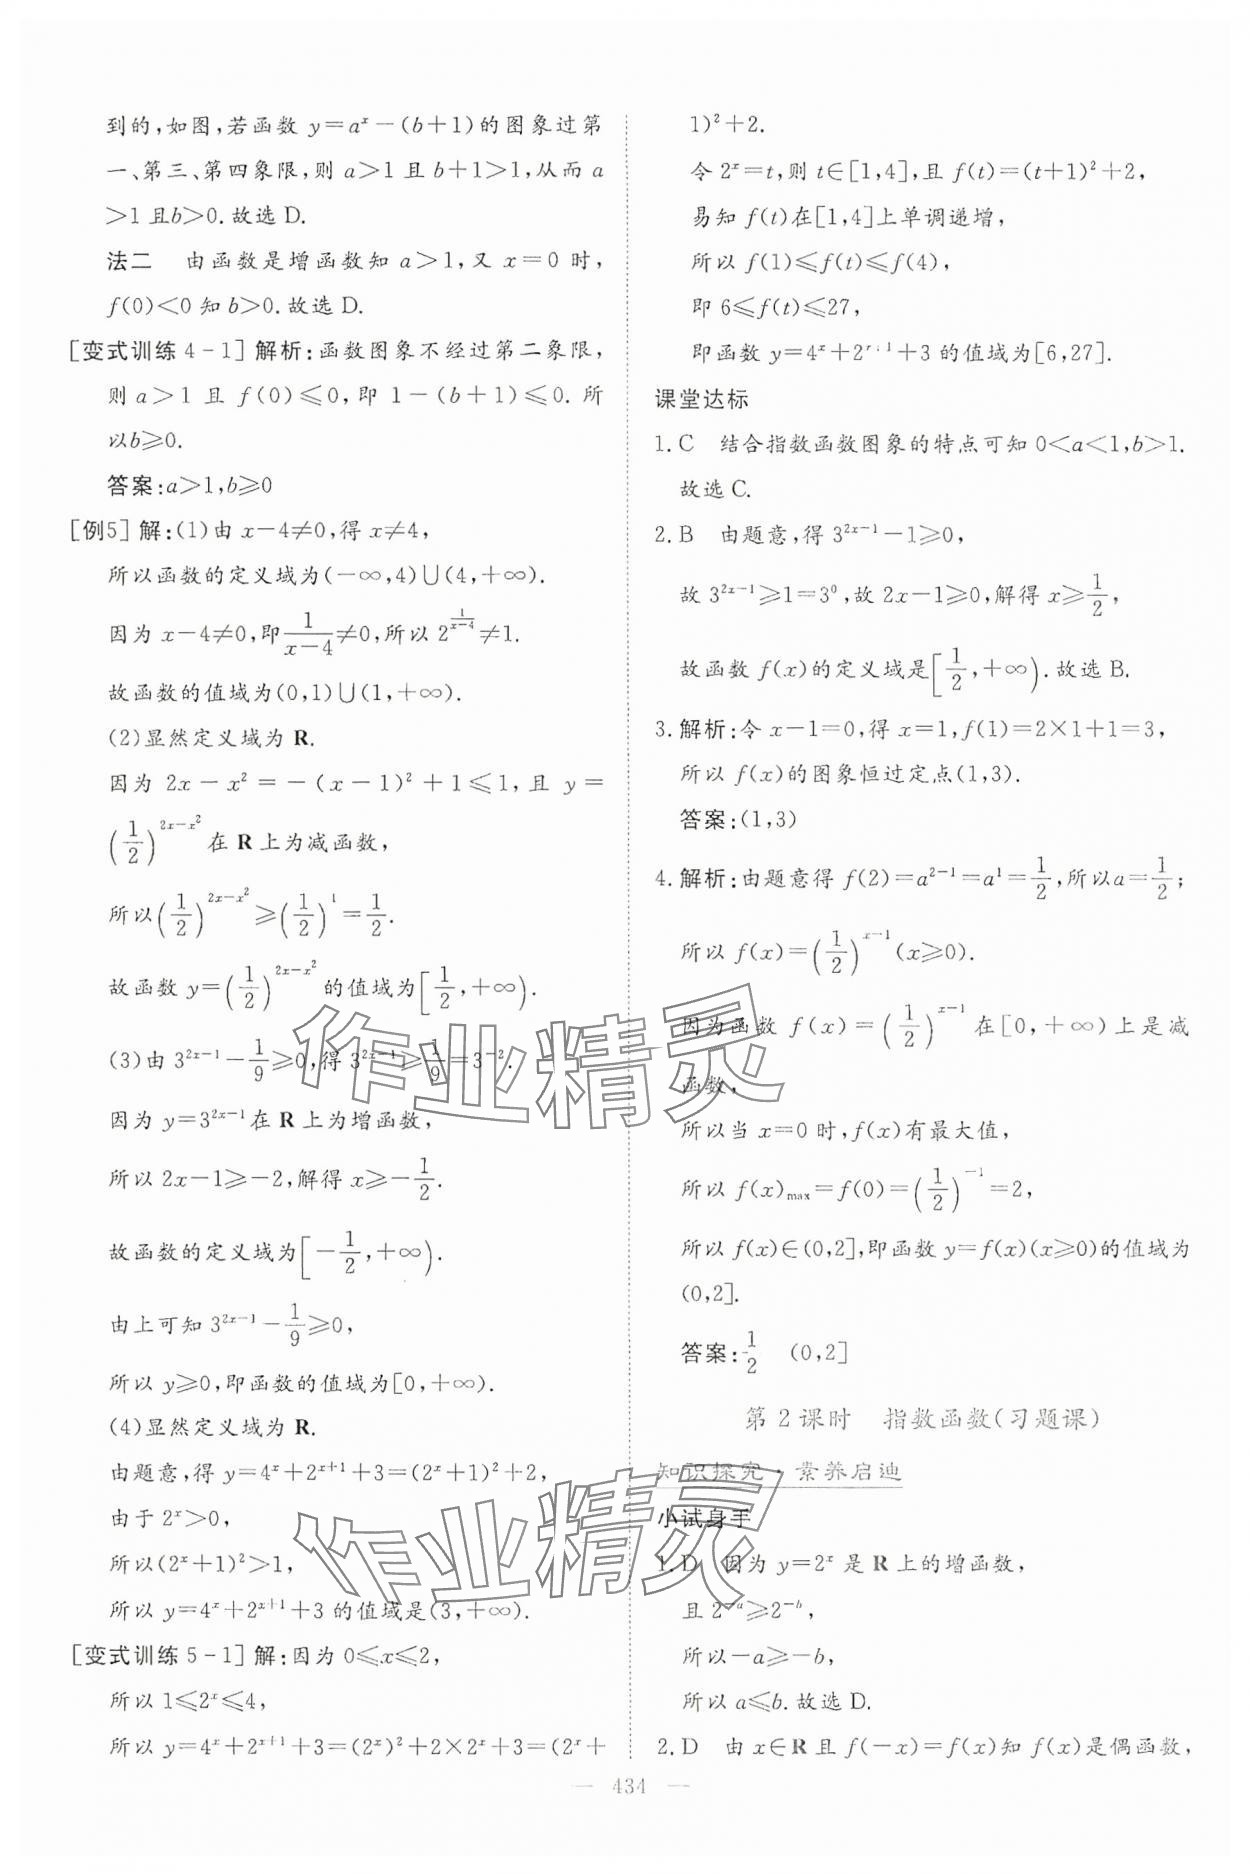 到的,如图,若函数 y=aˣ-(b+1)的图象过第
一、第三、第四象限,则 a>1 且 b+1>1,从而 a
>1 且b>0.故选 D.
法二 由函数是增函数知 a>1,又 x=0 时,
f(0)<0 知 b>0.故选 D.
[变式训练 4-1] 解析:函数图象不经过第二象限,
则 a>1 且 f(0)≤0,即 1-(b+1)≤0.所
以b≥0.
答案:a>1,b≥0
[例5] 解:(1)由 x-4≠0,得 x≠4,
所以函数的定义域为(-∞,4)∪(4,+∞).
因为 x-4≠0,即\frac{1}{x-4}≠0,所以 2^{\frac{1}{x-4}}≠1.
故函数的值域为(0,1)∪(1,+∞).
(2)显然定义域为 R.
因为 2x-x²=-(x-1)²+1≤1,且 y=
(\frac{1}{2})^{2x-x²}在 R 上为减函数,
所以(\frac{1}{2})^{2x-x²}≥(\frac{1}{2})^{1}=\frac{1}{2}.
故函数 y=(\frac{1}{2})^{2x-x²}的值域为[\frac{1}{2},+∞).
(3)由 3^{2x-1}-\frac{1}{9}≥0,得 3^{2x-1}≥\frac{1}{9}=3^{-2}.
因为 y=3^{2x-1}在 R 上为增函数,
所以 2x-1≥-2,解得 x≥-\frac{1}{2}.
故函数的定义域为[-\frac{1}{2},+∞).
由上可知 3^{2x-1}-\frac{1}{9}≥0,
所以 y≥0,即函数的值域为[0,+∞).
(4)显然定义域为 R.
由题意,得 y=4ˣ+2^{x+1}+3=(2ˣ+1)²+2,
由于 2ˣ>0,
所以(2ˣ+1)²>1,
所以 y=4ˣ+2^{x+1}+3 的值域是(3,+∞).
[变式训练 5-1] 解:因为 0≤x≤2,
所以 1≤2ˣ≤4,
所以 y=4ˣ+2^{x+1}+3=(2ˣ)²+2×2ˣ+3=(2ˣ+
1)²+2.
令 2ˣ=t,则 t∈[1,4],且 f(t)=(t+1)²+2,
易知 f(t)在[1,4]上单调递增,
所以 f(1)≤f(t)≤f(4),
即 6≤f(t)≤27,
即函数 y=4ˣ+2^{x+1}+3 的值域为[6,27].
课堂达标
1.C 结合指数函数图象的特点可知 0<a<1,b>1.
故选 C.
2.B 由题意,得 3^{2x-1}-1≥0,
故 3^{2x-1}≥1=3⁰,故 2x-1≥0,解得 x≥\frac{1}{2},
故函数 f(x)的定义域是[\frac{1}{2},+∞).故选 B.
3.解析:令 x-1=0,得 x=1,f(1)=2×1+1=3,
所以 f(x)的图象恒过定点(1,3).
答案:(1,3)
4.解析:由题意得 f(2)=a^{2-1}=a¹=\frac{1}{2},所以a=\frac{1}{2};
所以 f(x)=(\frac{1}{2})^{x-1}(x≥0).
因为函数 f(x)=(\frac{1}{2})^{x-1}在[0,+∞)上是减
函数,
所以当 x=0 时,f(x)有最大值,
所以 f(x)_{max}=f(0)=(\frac{1}{2})^{-1}=2,
所以 f(x)∈(0,2],即函数 y=f(x)(x≥0)的值域为
(0,2].
答案:\frac{1}{2} (0,2]
第 2 课时 指数函数(习题课)
知识探究·素养启迪
小试身手
1.D 因为 y=2ˣ 是 R 上的增函数,
且 2^{-a}≥2^{-b},
所以-a≥-b,
所以 a≤b.故选 D.
2.D 由 x∈R 且 f(-x)=f(x)知 f(x)是偶函数,
— 434 —
作业精灵
作业精灵